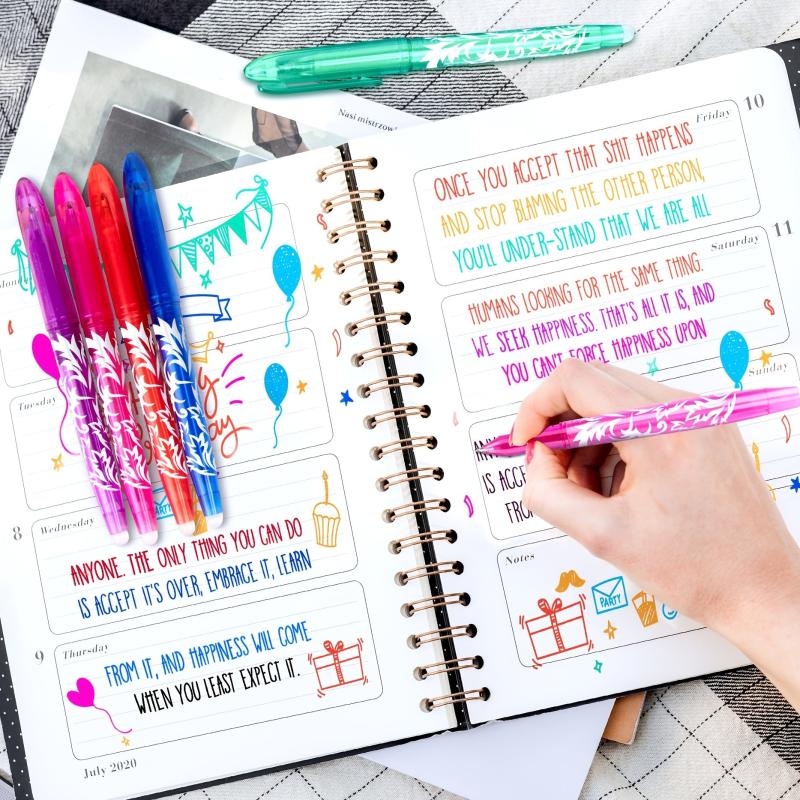 Nasi
Tuesday
8 Wednesday
ANYONE. THE ONLY THING YOU CAN DO
IS ACCEPT IT'S OVER, EMBRACE IT, LEARN
9 Thursday
FROM IT, AND HAPPINESS WILL COME
WHEN YOU LEAST EXPECT IT.
July 2020
Friday 10
ONCE YOU ACCEPT THAT SHIT HAPPENS
AND STOP BLAMING THE OTHER PERSON,
YOU'LL UNDER-STAND THAT WE ARE ALL
Saturday 11
HUMANS LOOKING FOR THE SAME THING.
WE SEEK HAPPINESS. THAT'S ALL IT IS, AND
YOU CAN'T FORCE HAPPINESS UPON
Sunday
IS
Notes
PARTY